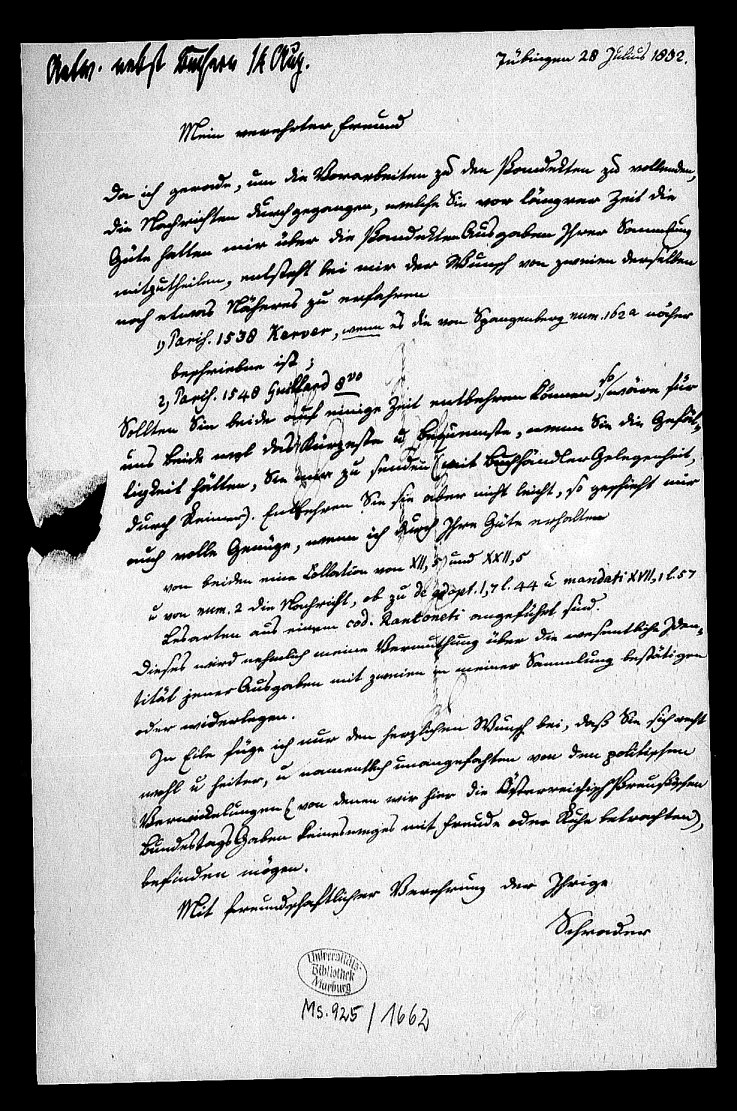 Antw. nebst Büchern 14 Aug.
Tübingen 28 Julius 1832.
Mein verehrter Freund
Da ich gerade, um die Vorarbeiten zu den Pandekten zu vollenden,
die Nachrichten durchgegangen, welche Sie vor längrer Zeit die
Güte hatten mir über die PandektenAusgaben Ihrer Sammlung
mitzutheilen, entsteht bei mir der Wunsch von zweien derselben
noch etwas Näheres zu erfahren
1) Paris. 1538 Kerver, wenn es die von Spangenberg num. 162a näher
beschriebne ist;
2) Paris. 1548 Guillard 8vo
Sollten Sie beide auf einige Zeit entbehren können, so wäre für
uns beide wol das Kürzeste u. Bequemste, wenn Sie die Gefäl-
ligkeit hätten, Sie mir zu senden (mit Buchhändler Gelegenheit,
durch Reimer). Entbehren Sie sie aber nicht leicht, so geschieht mir
auch volle Genüge, wenn ich durch Ihre Güte erhalte
von beiden eine Collation von XII, 5 und XXII, 5
u von num. 2 die Nachricht, ob zu de adopt. I, 7 l. 44 u mandati XVII, 1 l. 57
Lesarten aus einem cod. Ranconeti angeführt sind.
Dieses wird nehmlich meine Vermuthung über die wesentliche Iden-
tität jener Ausgaben mit zweien in meiner Sammlung bestätigen
oder widerlegen.
In Eile füge ich nur den herzlichen Wunsch bei, daß Sie sich recht
wohl u heiter, u namentlich unangefochten von den politischen
Verwickelungen (von denen wir hier die Österreichisch Preussischen
BundestagsGaben keineswegs mit Freude oder Ruhe betrachten),
befinden mögen.
Mit freundschaftlicher Verehrung der Ihrige
Schrader
Universitäts-
Bibliothek
Marburg
Ms. 925/1662